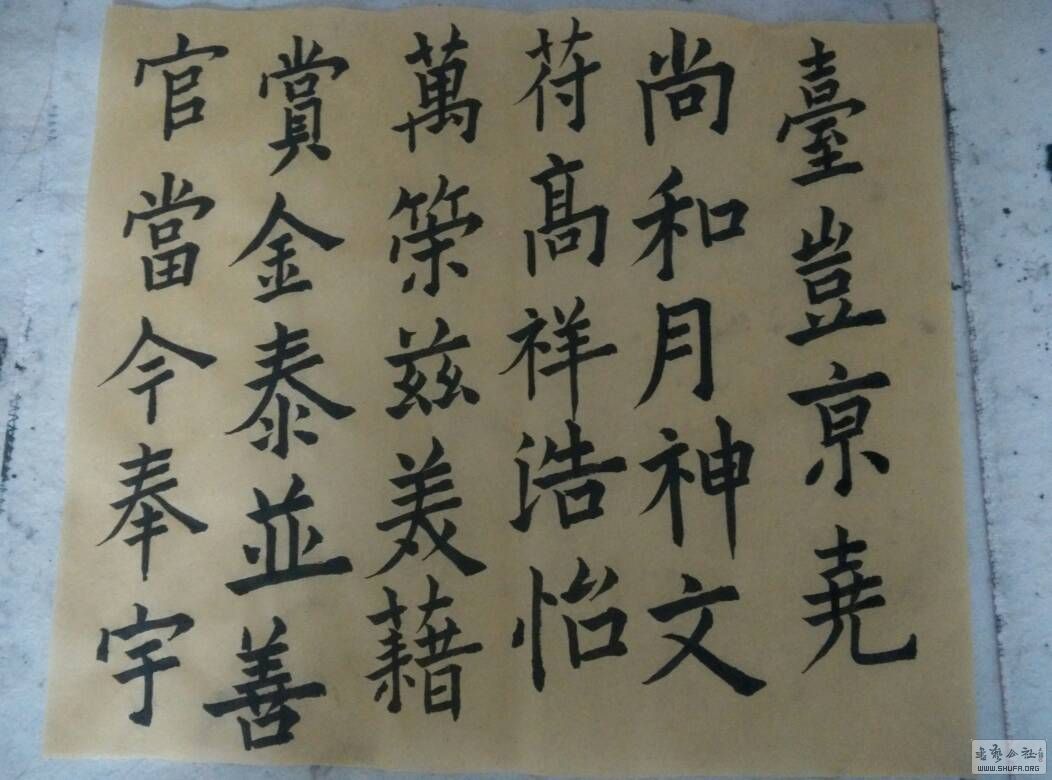 臺豈京堯
尚和月神文
苻高祥浩怡
萬策茲美藉
賞金泰並善
官當今奉宇
书艺公社
WWW.SHUFA.ORG